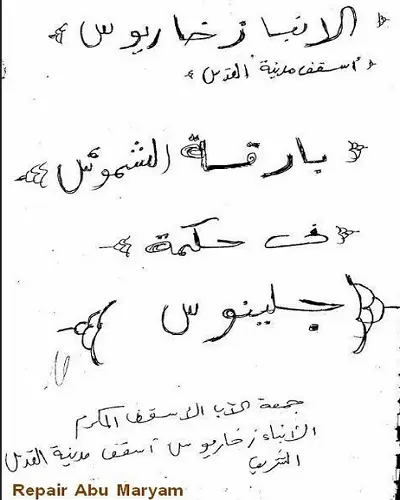 الانبا زخاريوس
اسقف مدينة القدس
بارقة الشموس
فى حكمة
جلينوس
جمعة الاب الاسقف المكرم
الانباء زخاريوس أسقف مدينة القدس
الشريف
Repair Abu Maryam